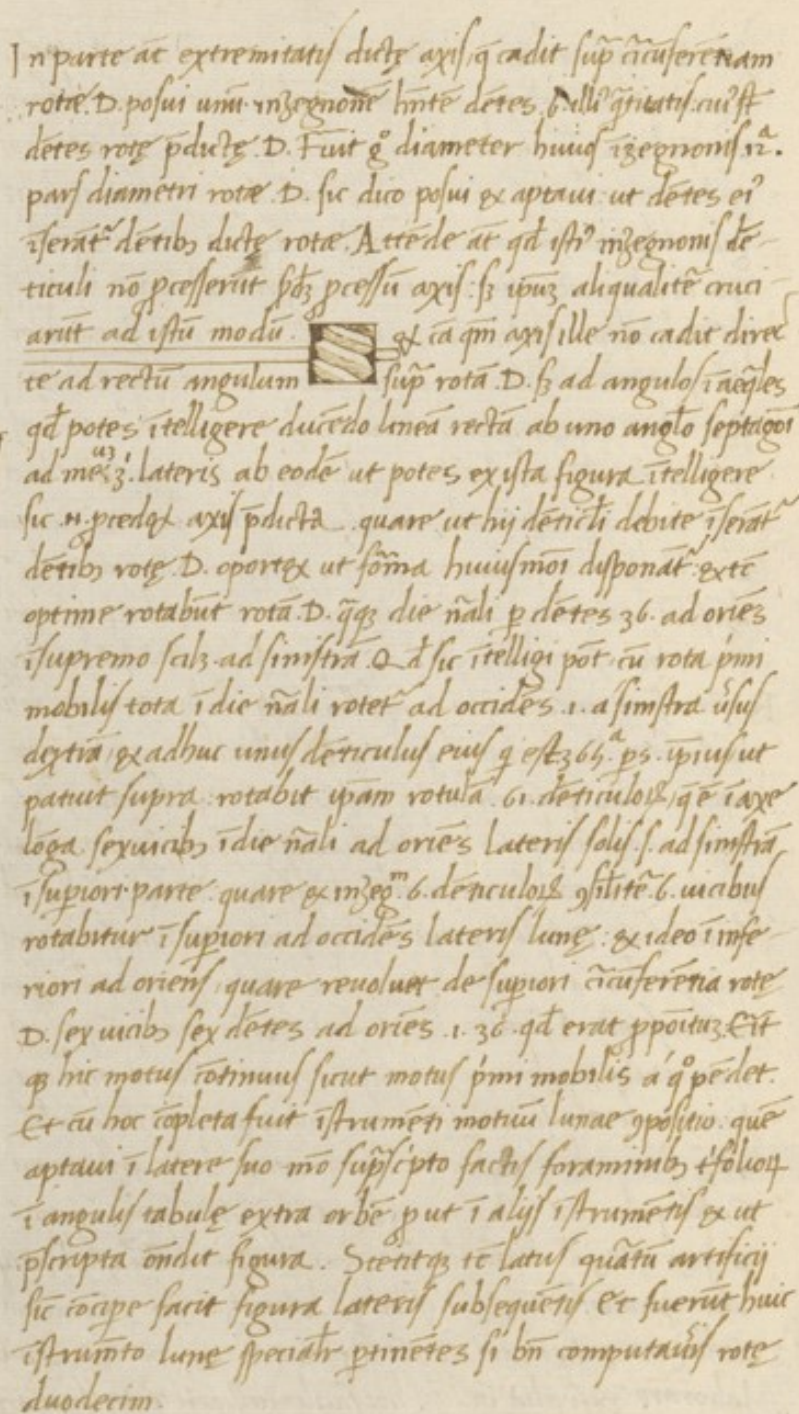 In parte āt extremitatis dictę axis q̄ cadit sup̄ c̄icūferētiam
rotæ. D. posui unū inzegnonē hn̄tē dētes 6. illiꝰ q̄titatis cuiꝰ st̄
dētes rotę p̄dictę. D. Fuit gͦ diameter huius īzegnonis 12ᵃ.
pars diametri rotæ D. sic dico posui & aptaui ut dētes eiꝰ
īserāt᷑ dētibꝫ dictę rotæ. Attēde āt qd̄ istiꝰ inzegnonis dē
ticuli nō ꝓcesserūt ꝓcessū axis: sꝫ ip̄ūꝫ aliqualitē cruci
arūt ad istū modū. & cā qm̄ axis ille nō cadit direc
te ad rectū angulum sup̄ rotā D. sꝫ ad angulos īæq̄les
qd̄ potes ītelligere ducēdo lineā rectā ab uno angl̄o septagōi
ad me 3ⁱ. lateris ab eodē ut potes ex ista figura ītelligere
sic .n. ꝓced& axis p̄dicta quare ut hij dēticl̄i debite īserāt᷑
dētibꝫ rotę D. oport& ut forma huiusmōi disponāt᷑ & tc̄
optime rotabūt rotā D. q̄qꝫ die n̄ali p dētes 36. ad oriēs
ī supremo scilꝫ ad sinistrā Qd̄ sic ītelligi pōt cū rota pⁱmi
mobilis tota ī die n̄ali rotet᷑ ad occidēs .1. a sinistra ūsus
dextrā & adhuc unus dēticulus eius q est 365ᵃ p̄s. ip̄ius ut
patuit supra rotabit ip̄am rotulā 61. dēticuloꝝ q̄ ē ī axe
lōga sexuicibꝫ ī die n̄ali ad oriēs lateris solis .s. ad sinistrā
ī superiori parte quare & inzegᵐ 6. dēticuloꝝ ꝯsil̄itē 6. uicibus
rotabitur ī superiori ad occidēs lateris lunę: & ideo ī infe
riori ad oriēns quare reuoluet de superiori c̄icūferētia rotę
D. sex uicibꝫ sex dētes ad oriēs .1. 36. qd̄ erat ꝓpōituꝫ. Erit
qꝫ hic motus cōtinuus sicut motus pⁱmi mobilis a qͦ pēdet.
Et cū hoc cōpleta fuit īstrumēti motuū lunae ꝯpositio. quē
aptaui ī latere suo mō sup̄scⁱpto factis foraminibꝫ tⁱfolioꝝ
ī angulis tabulę extra orbē ꝓut ī alijs īstrumētis & ut
p̄scripta ōndit figura. Stetitqꝫ tc̄ latus quātū artificij
sic cōcipe facit figura lateris subsequētis Et fuerūt huic
īstrum̄to lunę specialr̄ ptinētes si bn̄ computauīs rotę
duodecim.